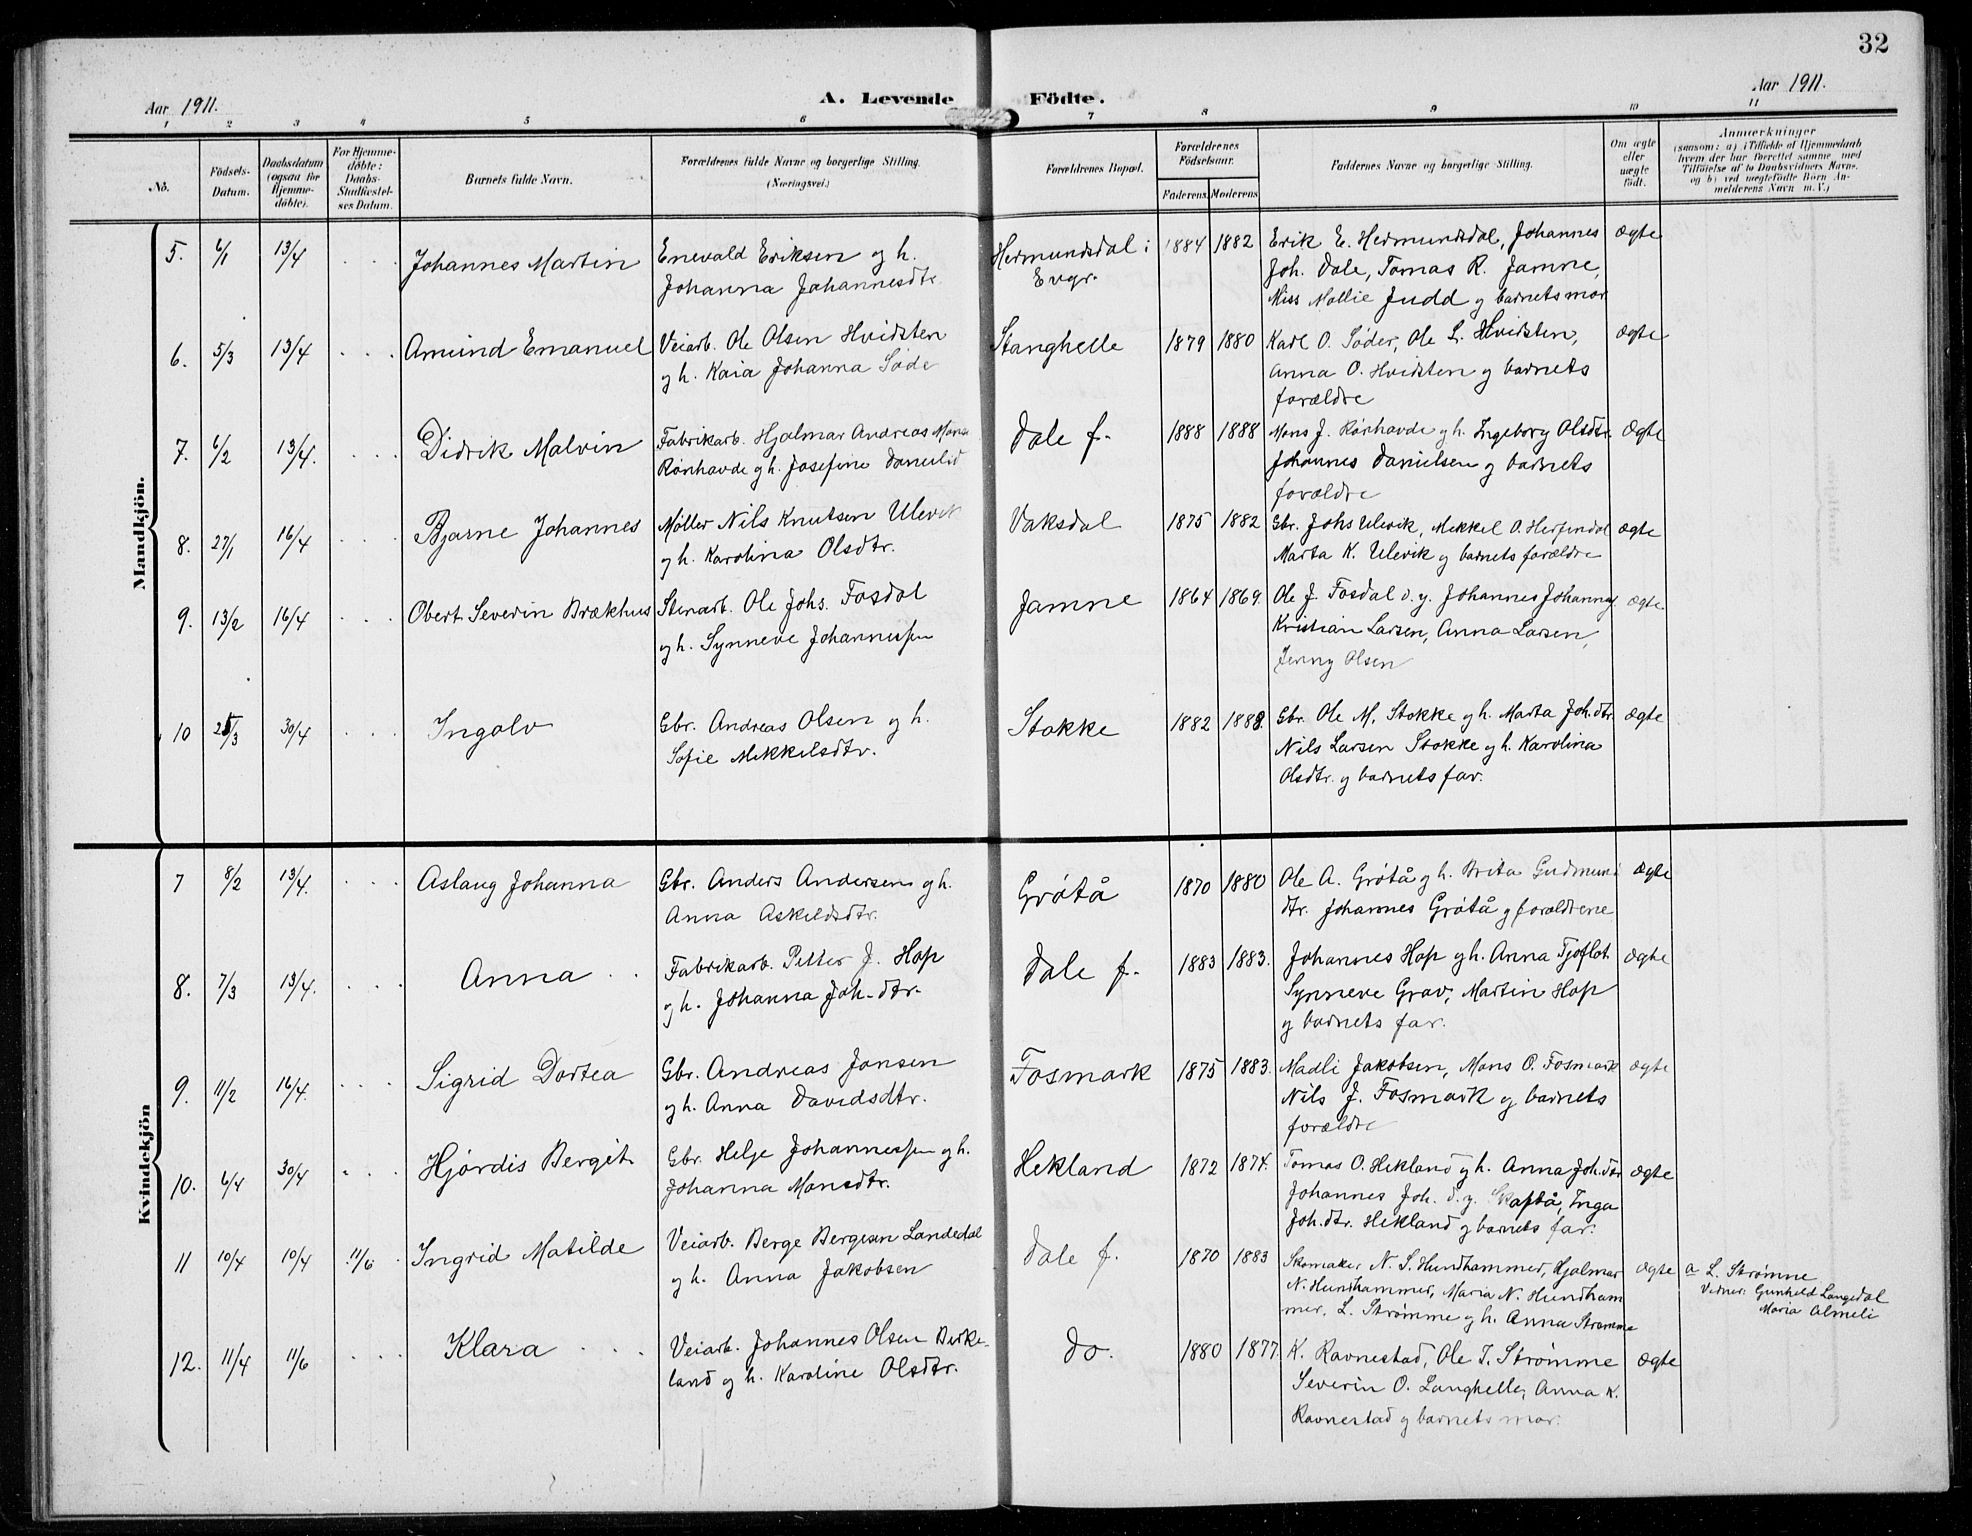 32
Aar 1911.
A. Levende Födte.
Aar 1911.
1 2 3 4 5 6 7 8 9 10 11
No.
Födsels-Datum.
Daabsdatum (ogsaa for Hjemme-döbte).
For Hjemme-döbte: Daabs-Stadfæstel-ses Datum.
Barnets fulde Navn.
Forældrenes fulde Navne og borgerlige Stilling. (Næringsvei.)
Forældrenes Bopæl.
Forældrenes Födselsaar.
Faderens. Moderens
Faddernes Navne og borgerlige Stilling.
Om ægte eller uægte födt.
Anmærkninger
(saasom: a) i Tilfælde af Hjemmedaab
hvem der har forrettet samme med
Tilföielse af to Daabsvidners Navne.
og b) ved uægtefödte Börn An-
melderens Navn m. V.)
Mandkjön.
5. 6/1 13/4 . . . Johannes Martin
Enevald Eriksen og h.
Johanna Johannesdtr.
Hermundsdal i
Evgr.
1884 1882
Erik E. Hermundsdal, Johannes
Joh. Dale, Tomas R. Jamne,
Miss Mollie Judd og barnets mor
ægte
6. 5/3 13/4 . . . Amund Emanuel
Veiarb. Ole Olsen Hvidsten
og h. Kaia Johanna Søde
Stanghelle
1879 1880
Karl O. Søder, Ole L. Hvidsten,
Anna O. Hvidsten og barnets
forældre
ægte
7. 6/2 13/4. . . . Didrik Malvin
Fabrikarb. Hjalmar Andreas Mons
Rønhovde og h. Josefine Danielsd
Dale f.
1888 1888
Mons J. Rønhovde og h. Ingeborg Olsdtr.
Johannes Danielsen og barnets
forældre
ægte
8. 27/1 16/4 . . . Bjarne Johannes
Møller Nils Knutsen Ulevik
og h. Karolina Olsdtr.
Vaksdal
1875 1882
Gbr. Johs Ulevik, Mekkel O. Herfindal
Marta K. Ulevik og barnets forældre
ægte
9. 13/2 16/4 . . . Obert Severin Brækhus
Stenarb. Ole Johs. Fosdal
og h. Synneve Johannessen
Jamne
1864 1869.
Ole J. Fosdal d.y. Johannes Johannes
Kristian Larsen, Anna Larsen,
Jenny Olsen
ægte.
10 25/3 30/4 . . . Ingolv
Gbr. Andreas Olsen og h.
Sofie Mekkelsdtr.
Stokke
1882 1888.
Gbr. Ole M. Stokke og h. Marta Joh.dtr.
Nils Larsen Stokke og h. Karolina
Olsdtr. og barnets far.
ægte
Kvindekjön
7 8/2 13/4. . . . Aslaug Johanna
Gbr. Anders Andersen og h.
Anna Askildsdtr.
Grøtå
1870 1880
Ole A. Grøtå og h. Brita Gudmund
dtr. Johannes Grøtå og forældrene
ægte
8. 7/3 13/4. . . . Anna . .
Fabrikarb. Petter J. Hop
og h. Johanna Joh.dtr.
Dale f.
1883 1883.
Johannes Hop og h. Anna Tjoflot
Synneve Grav, Martin Hop
og barnets far.
ægte
9. 11/2 16/4. . . . Sigrid Dortea
Gbr. Andreas Jonsen
og h. Anna Davidsdtr.
Fosmark
1875 1883.
Madli Jakobsen, Mons O. Fosmark
Nils J. Fosmark og barnets
forældre
ægte
10. 6/4 30/4 . . . Hjørdis Bergit
Gbr. Helje Johannessen og h.
Johanna Monsdtr.
Hekland
1872 1874.
Tomas O. Hekland og h. Anna Joh.dtr
Johannes Joh. d.y. Skaftå, Inga
Joh.dtr. Hekland og barnets far.
ægte
11 10/4 10/4 11/6 . Ingrid Matilde
Veiarb. Berge Bergesen Landedal
og h. Anna Jakobsen
Dale f.
1870 1883
Skomaker N. S. Hundhammer, Hjalmar
N. Hundhammer, Maria N. Hundham
mer, L. Strømme og h. Anna Strømme
ægte
a L. Strømme
Vidner: Gunhild Langedal
Maria Almeli
12. 11/4 11/6 . . . Klara . . .
Veiarb. Johannes Olsen Birke-
land og h. Karoline Olsdtr.
Do.
1880 1877.
K. Ravnestad, Ole I. Strømme
Severin O. Langhelle, Anna K.
Ravnestad og barnets mor.
ægte